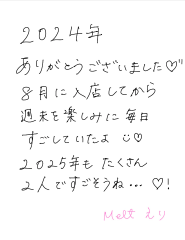 2024年
ありがとうございました♡
8月に入店してから
週末を楽しみに毎日
すごしていたよ ☺♡
2025年も たくさん
2人ですごそうね… ♡!
Melt えり